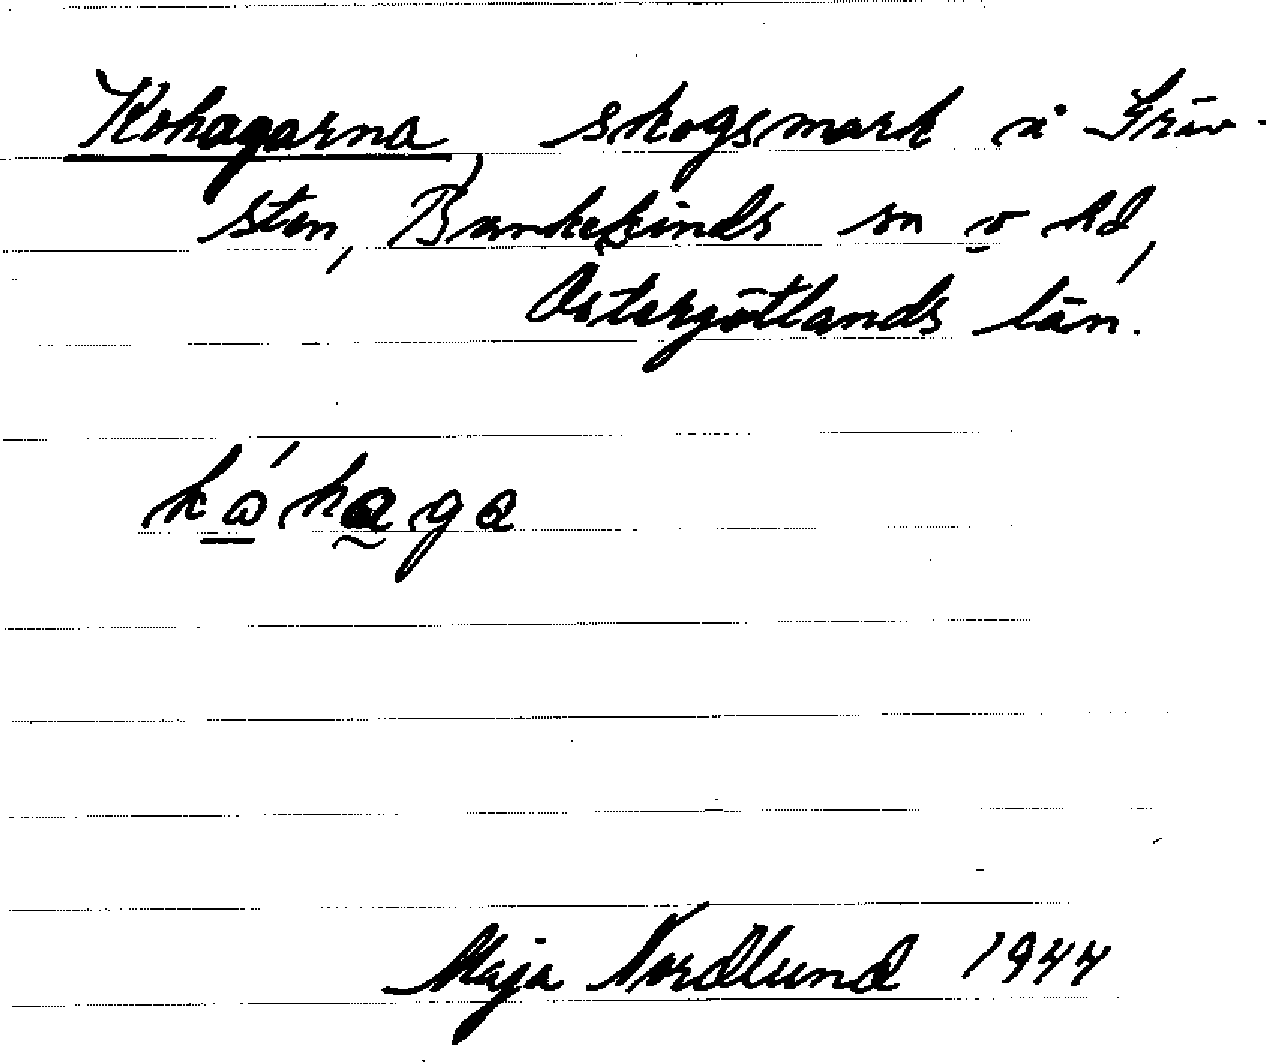 Kohagarna, skogsmark i Gräv-
sten, Bankekinds sn o hd,
Östergötlands län.
kὼ́haga
Maja Nordlund 1944